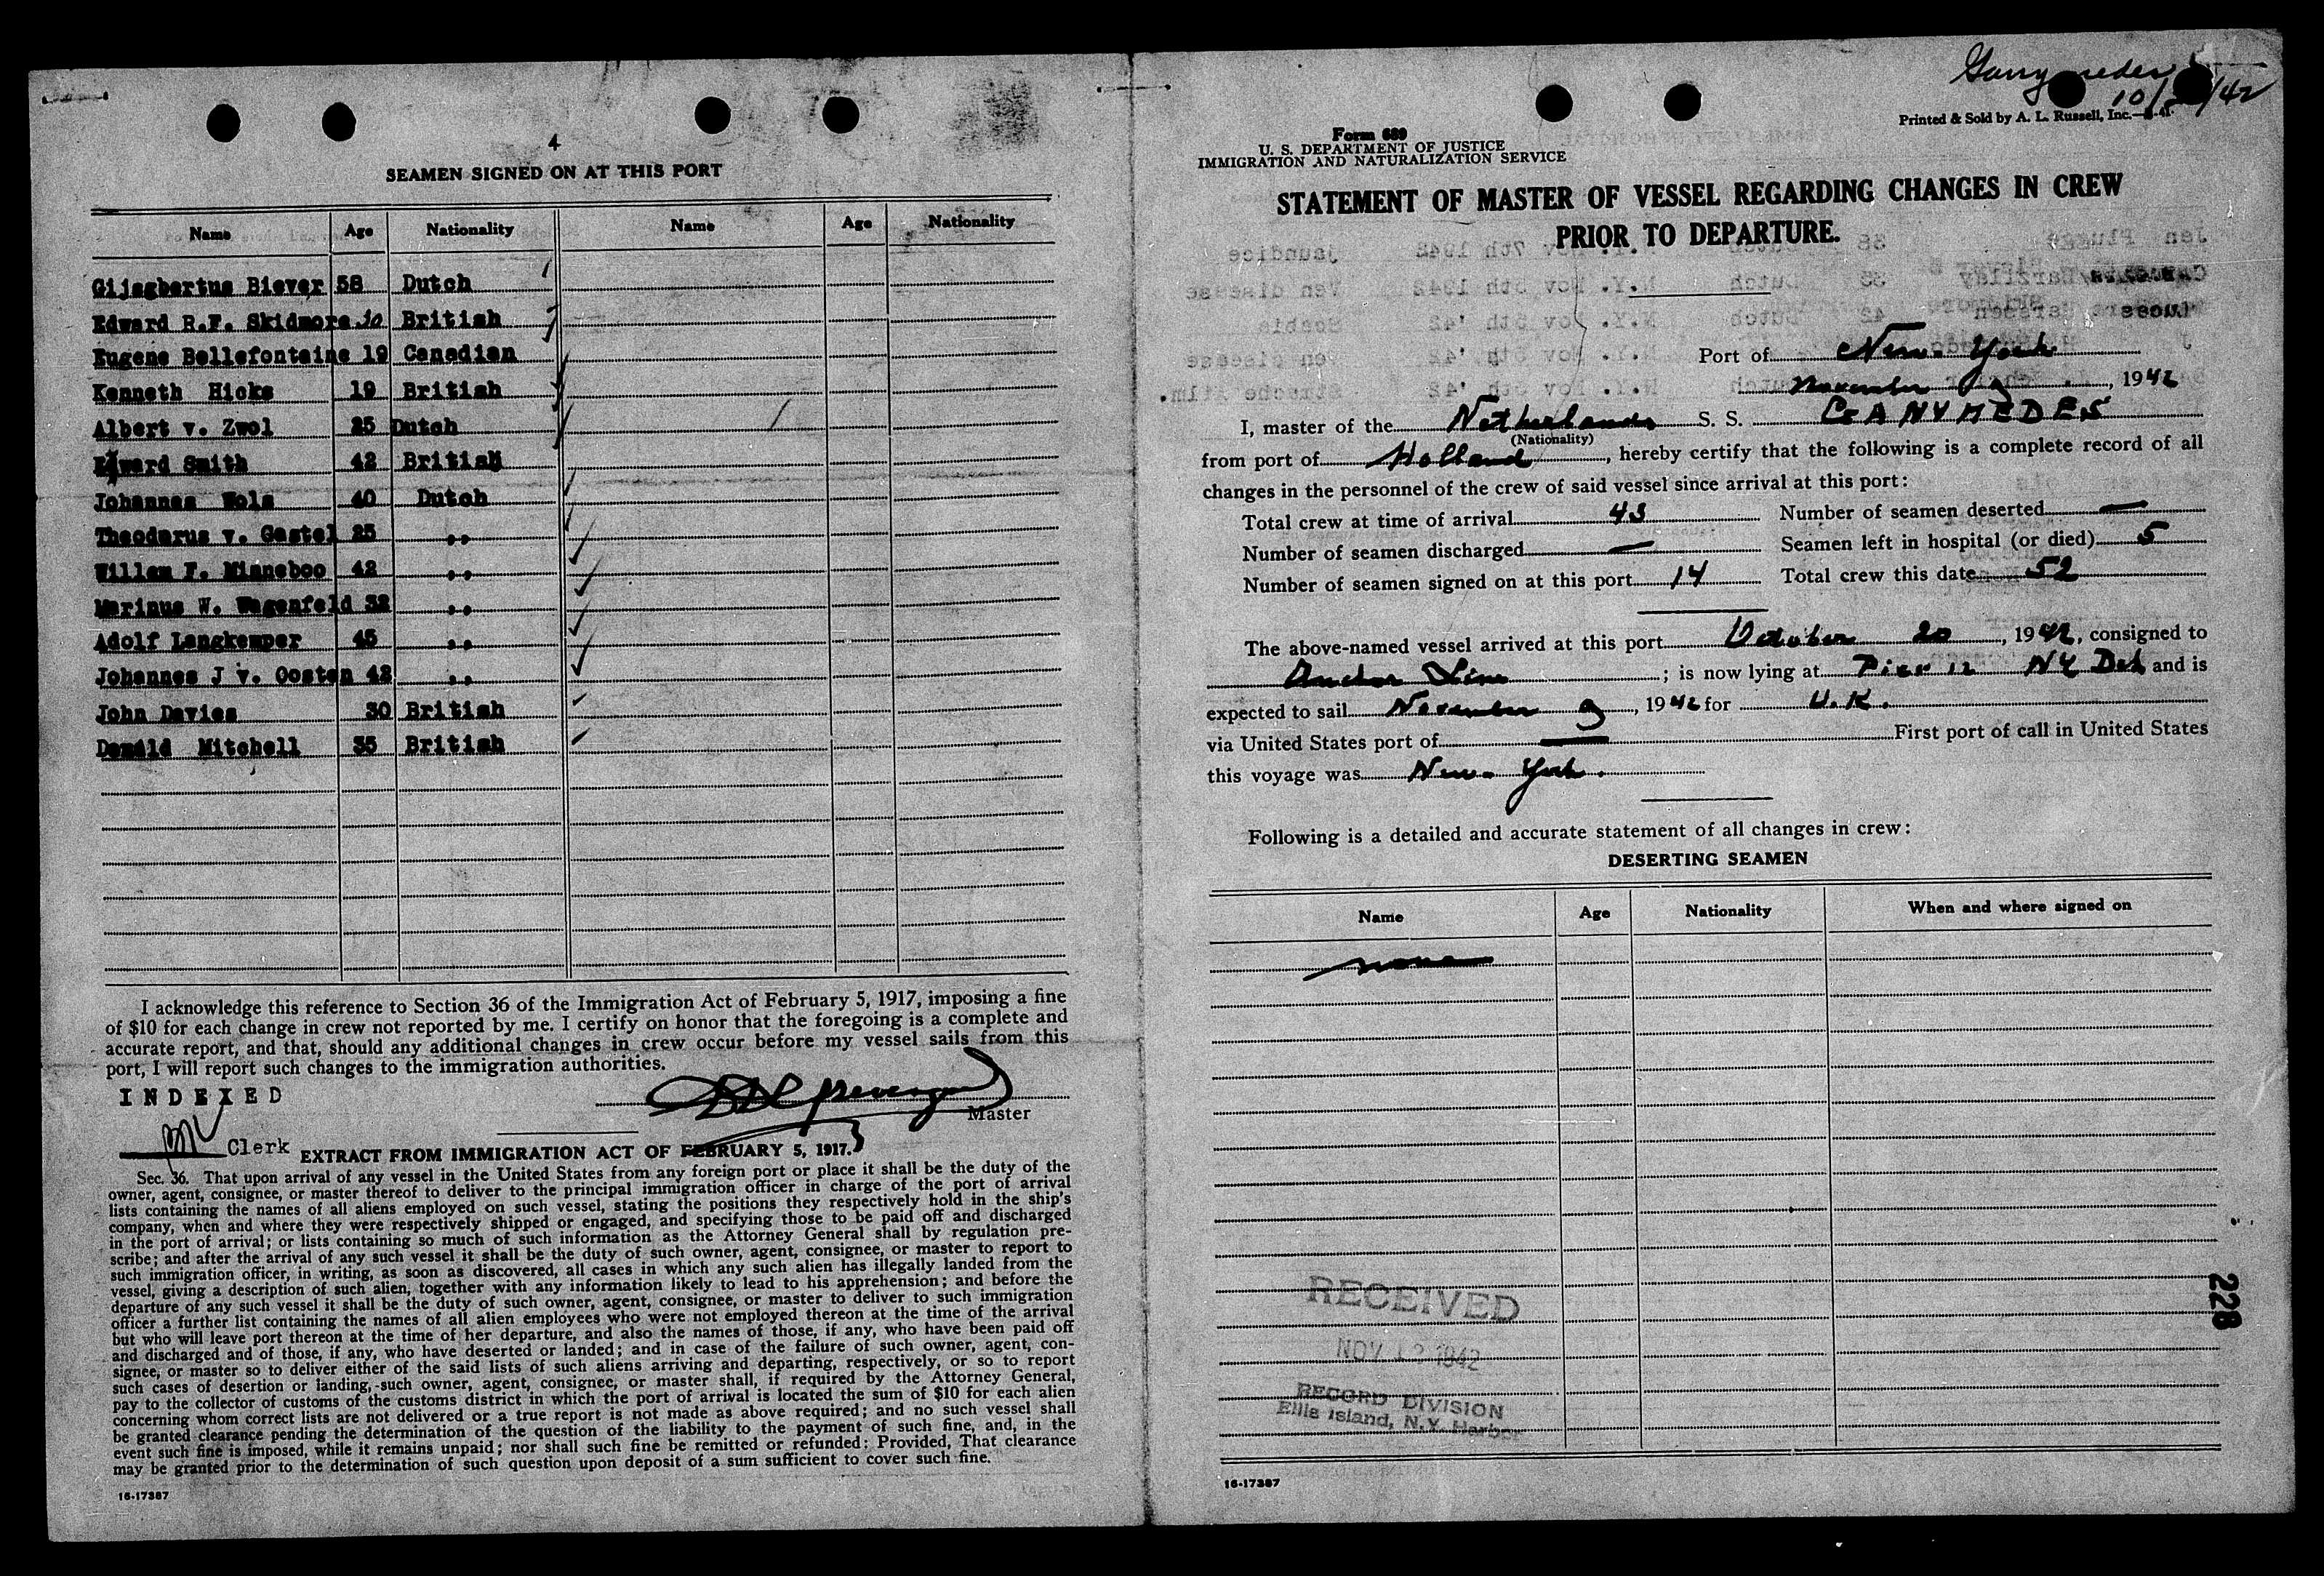 4
SEAMEN SIGNED ON AT THIS PORT
Name Age Nationality Name Age Nationality
Gijsgbertus Biever 58 Dutch
Edward R.F. Skidmore 30 British
Eugene Bellefontaine 19 Canadian
Kenneth Hicks 19 British
Albert v. Zwol 25 Dutch
Edward Smith 42 British
Johannes Wols 40 Dutch
Theodurus v. Gastel 25 ,,
Willem F. Minneboo 42 ,,
Marinus W. Wagenfeld 32 ,,
Adolf Langkemper 45 ,,
Johannes J v. Oosten 42 ,,
John Davies 30 British
Donald Mitchell 35 British
I acknowledge this reference to Section 36 of the Immigration Act of February 5, 1917, imposing a fine
of $10 for each change in crew not reported by me. I certify on honor that the foregoing is a complete and
accurate report, and that, should any additional changes in crew occur before my vessel sails from this
port, I will report such changes to the immigration authorities.
INDEXED
Master
Clerk
EXTRACT FROM IMMIGRATION ACT OF FEBRUARY 5, 1917.
Sec. 36. That upon arrival of any vessel in the United States from any foreign port or place it shall be the duty of the
owner, agent, consignee, or master thereof to deliver to the principal immigration officer in charge of the port of arrival
lists containing the names of all aliens employed on such vessel, stating the positions they respectively hold in the ship's
company, when and where they were respectively shipped or engaged, and specifying those to be paid off and discharged
in the port of arrival; or lists containing so much of such information as the Attorney General shall by regulation pre-
scribe; and after the arrival of any such vessel it shall be the duty of such owner, agent, consignee, or master to report to
such immigration officer, in writing, as soon as discovered, all cases in which any such alien has illegally landed from the
vessel, giving a description of such alien, together with any information likely to lead to his apprehension; and before the
departure of any such vessel it shall be the duty of such owner, agent, consignee, or master to deliver to such immigration
officer a further list containing the names of all alien employees who were not employed thereon at the time of the arrival
but who will leave port thereon at the time of her departure, and also the names of those, if any, who have been paid off
and discharged and of those, if any, who have deserted or landed; and in case of the failure of such owner, agent, con-
signee, or master so to deliver either of the said lists of such aliens arriving and departing, respectively, or so to report
such cases of desertion or landing, such owner, agent, consignee, or master shall, if required by the Attorney General,
pay to the collector of customs of the customs district in which the port of arrival is located the sum of $10 for each alien
concerning whom correct lists are not delivered or a true report is not made as above required; and no such vessel shall
be granted clearance pending the determination of the question of the liability to the payment of such fine, and, in the
event such fine is imposed, while it remains unpaid; nor shall such fine be remitted or refunded: Provided, That clearance
may be granted prior to the determination of such question upon deposit of a sum sufficient to cover such fine.
16-17387
10/ /42
Printed & Sold by A. L. Russell, Inc.
Form 689
U. S. DEPARTMENT OF JUSTICE
IMMIGRATION AND NATURALIZATION SERVICE
STATEMENT OF MASTER OF VESSEL REGARDING CHANGES IN CREW
PRIOR TO DEPARTURE.
Port of New York
November 9, 1942
I, master of the Netherlands S. S. GANYMEDES
(Nationality)
from port of Holland, hereby certify that the following is a complete record of all
changes in the personnel of the crew of said vessel since arrival at this port:
Total crew at time of arrival 43 Number of seamen deserted —
Number of seamen discharged — Seamen left in hospital (or died) 5
Number of seamen signed on at this port 14 Total crew this date 52
The above-named vessel arrived at this port October 20, 1942, consigned to
Anchor Line; is now lying at Pier 12 NY Dok and is
expected to sail November 9, 1942 for U.K.
via United States port of — First port of call in United States
this voyage was New York.
Following is a detailed and accurate statement of all changes in crew:
DESERTING SEAMEN
Name Age Nationality When and where signed on
none
RECEIVED
NOV 12 1942
RECORD DIVISION
Ellis Island, N.Y. Harbor
228
16-17387